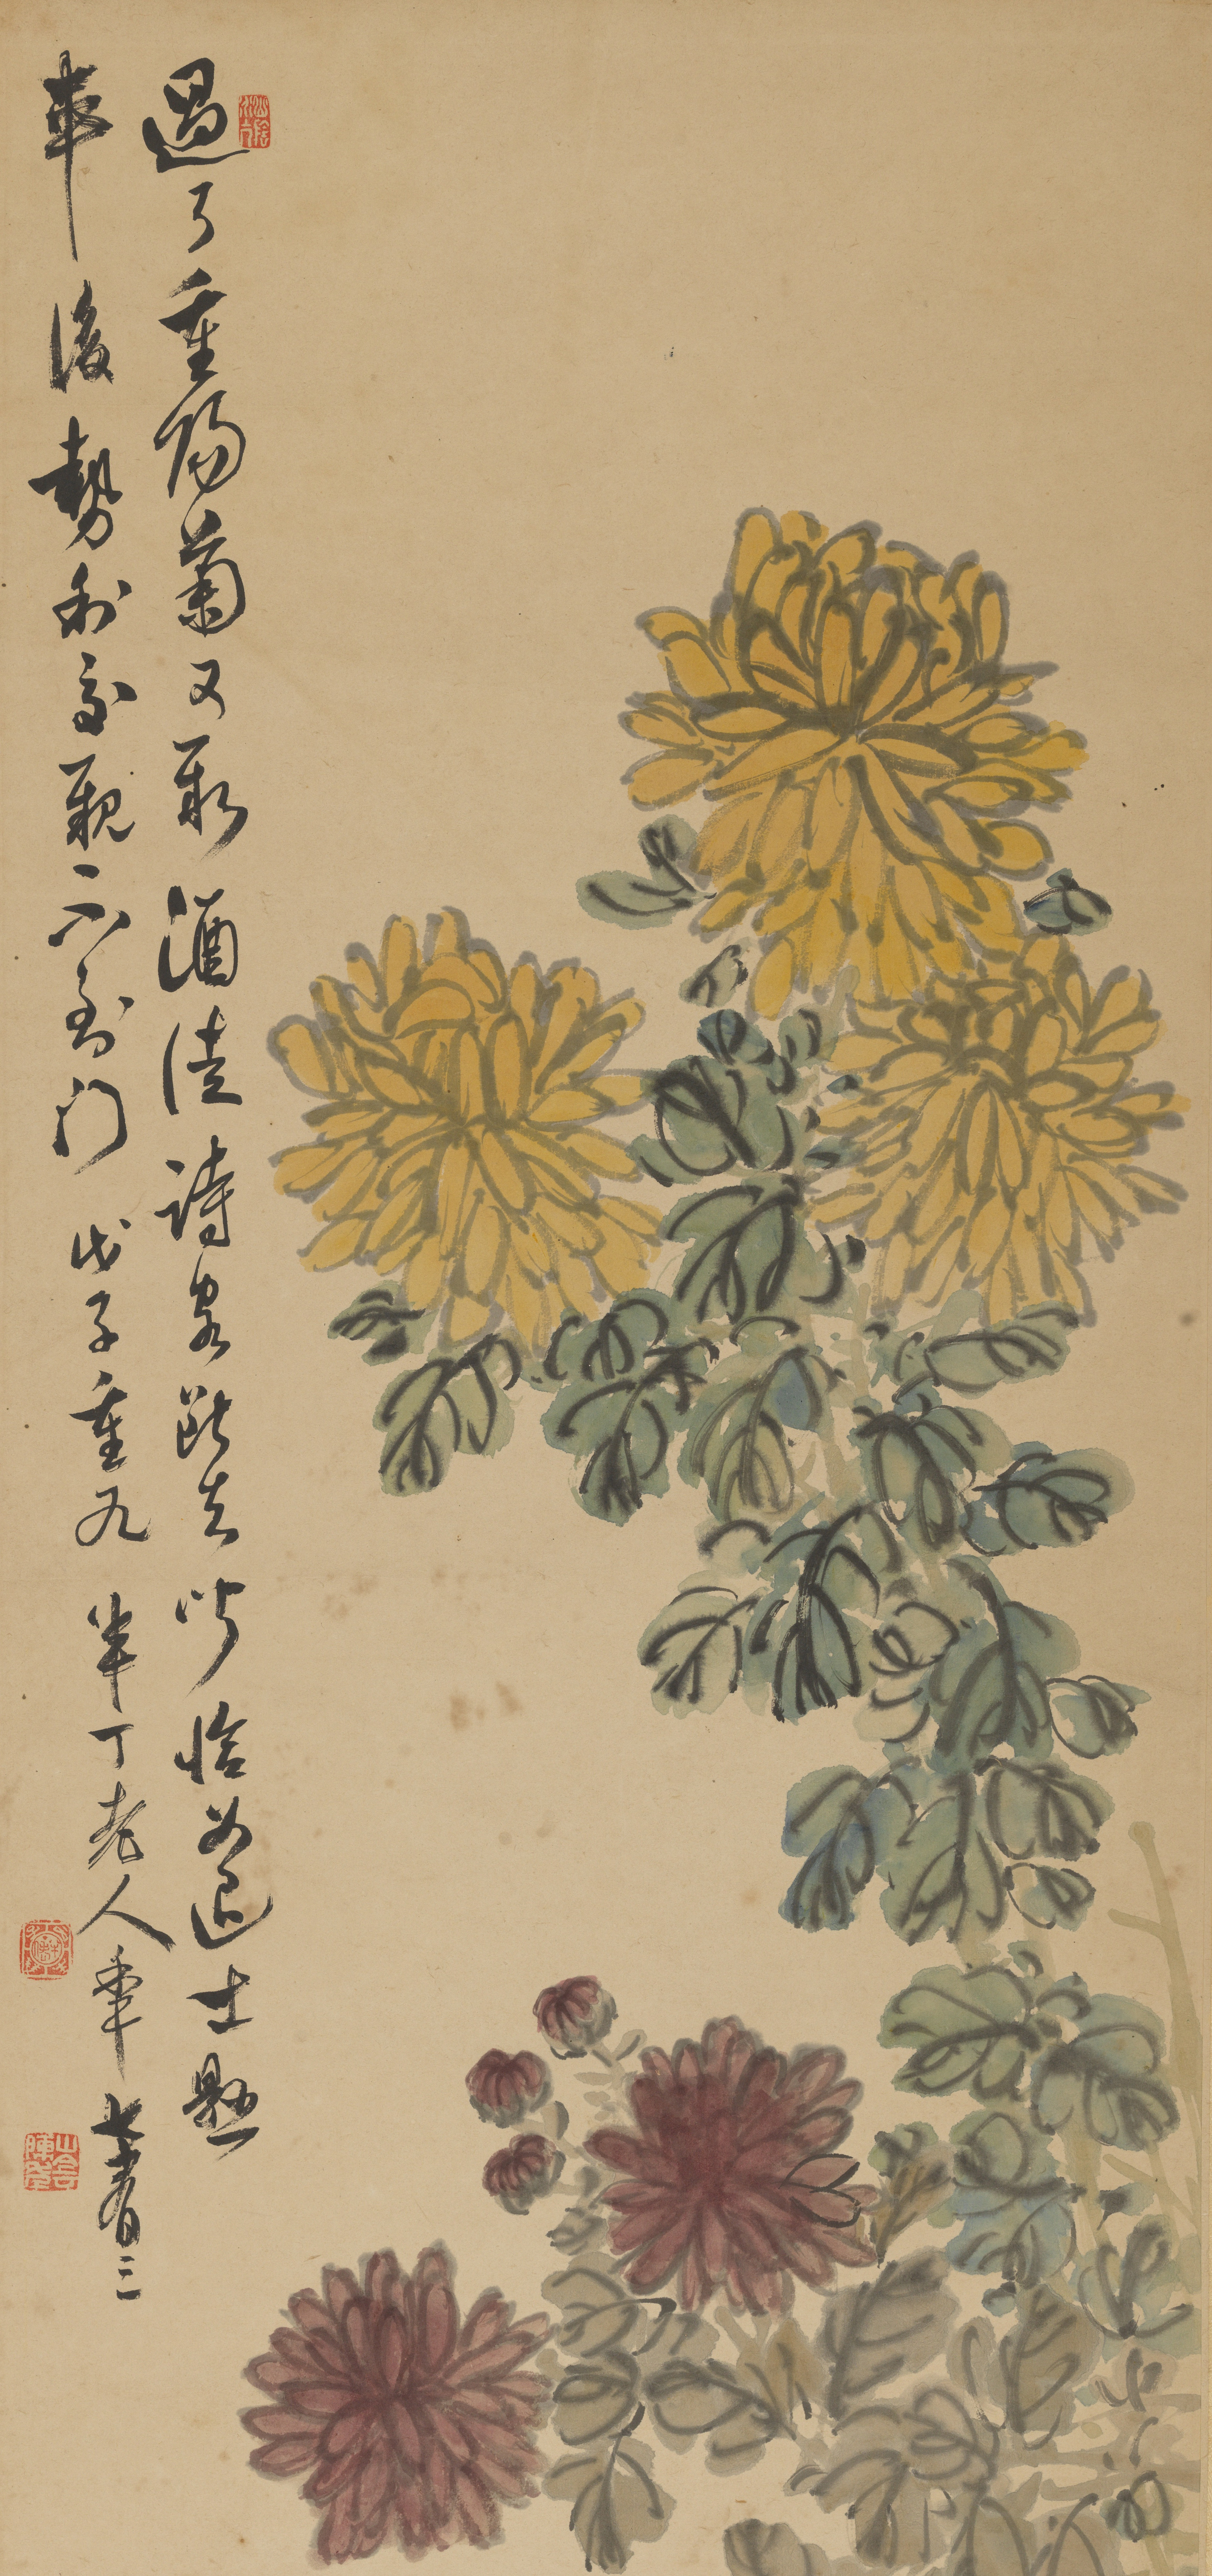 過了重陽菊又酒徒詩客斷恰如退士懸
車後勢利交親不到門 戊子重九 半丁老人年七十有三
山陰陳年